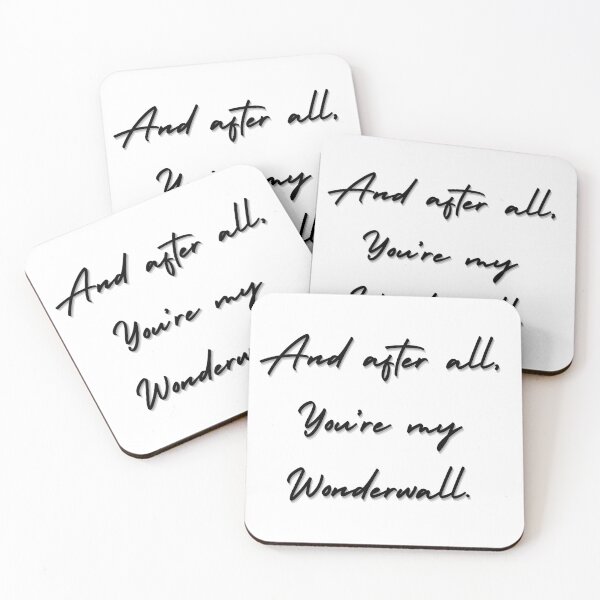 And after all,
You're my
And after all,
You're my
And after all,
You're my
Wonderwa
And after all,
You're my
Wonderwall.